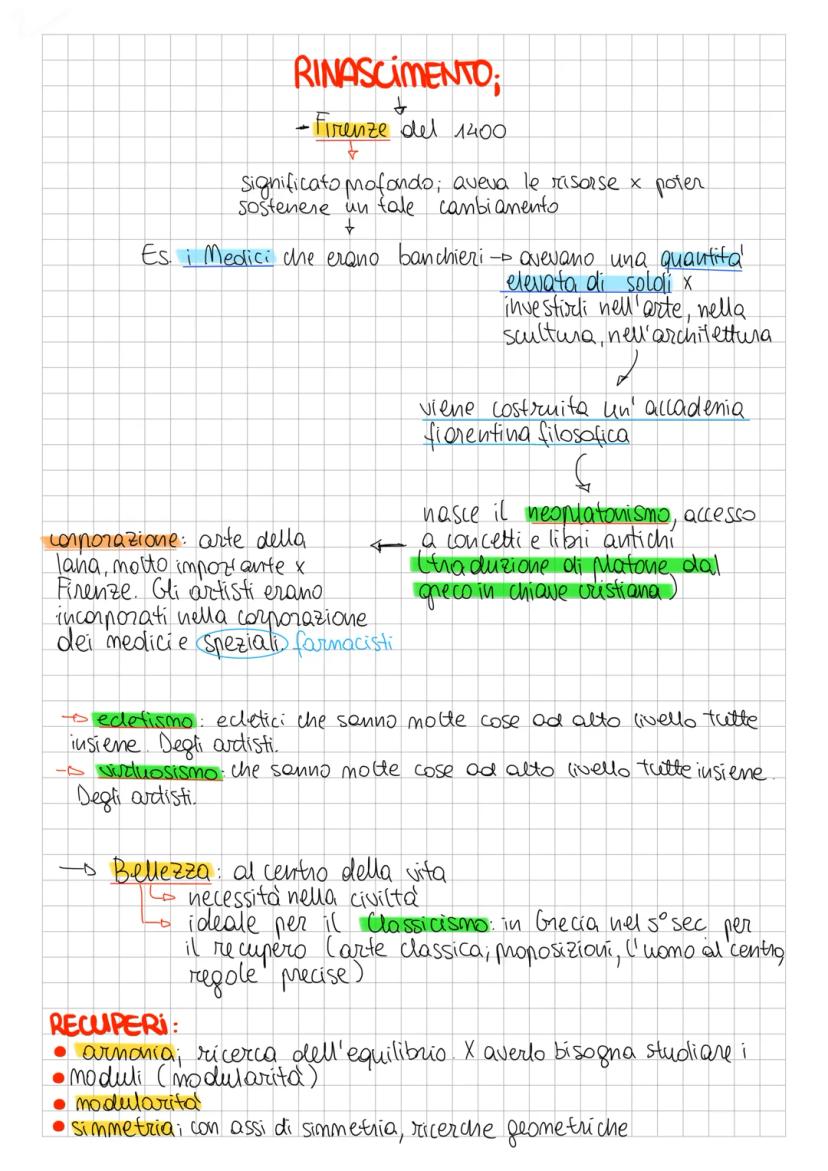 RINASCIMENTO;
- Firenze del 1400
significato profondo; aveva le risorse x poter
sostenere un tale cambiamento
Es. i Medici che erano banchieri → avevano una quantità
elevata di soldi x
investirli nell'arte, nella
scultura, nell'architettura
viene costruita un'accademia
fiorentina filosofica
nasce il neoplatonismo, accesso
a concetti e libri antichi
(traduzione di Platone dal
greco in chiave cristiana)
corporazione: arte della
lana, molto importante x
Firenze. Gli artisti erano
incorporati nella corporazione
dei medici e speziali. farmacisti
→ ecletismo: ecletici che sanno molte cose ad alto livello tutte
insieme. Degli artisti.
→ virtuosismo: che sanno molte cose ad alto livello tutte insieme.
Degli artisti.
→ Bellezza: al centro della vita
→ necessità nella civiltà
→ ideale per il Classicismo: in Grecia nel 5° sec per
il recupero (arte classica; proposizioni, l'uomo al centro,
regole precise)
RECUPERI:
• armonia; ricerca dell'equilibrio. X averlo bisogna studiare i
• moduli (modularità)
• modularità
• simmetria; con assi di simmetria, ricerche geometriche